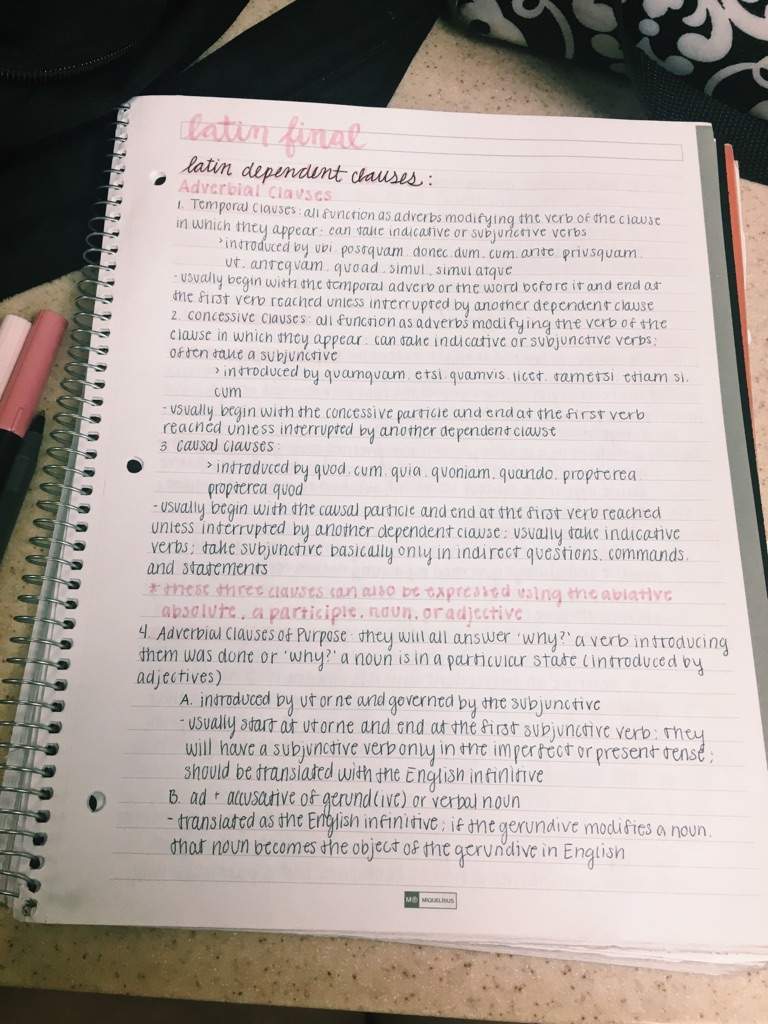 latin final
latin dependent clauses:
Adverbial Clauses
1. Temporal Clauses: all function as adverbs modifying the verb of the clause
in which they appear: can take indicative or subjunctive verbs
> introduced by ubi, postquam, donec, dum, cum, ante, priusquam,
ut, antequam, quoad, simul, simul atque
- usually begin with the temporal adverb or the word before it and end at
the first verb reached unless interrupted by another dependent clause
2. Concessive Clauses: all function as adverbs modifying the verb of the
clause in which they appear: can take indicative or subjunctive verbs;
often take a subjunctive
> introduced by quamquam, etsi, quamvis, licet, tametsi, etiam si,
cum
- usually begin with the concessive particle and end at the first verb
reached unless interrupted by another dependent clause
3. Causal Clauses:
> introduced by quod, cum, quia, quoniam, quando, propterea
propterea quod
- usually begin with the causal particle and end at the first verb reached
unless interrupted by another dependent clause; usually take indicative
verbs; take subjunctive basically only in indirect questions, commands,
and statements
* these three clauses can also be expressed using the ablative
absolute, a participle, noun, or adjective
4. Adverbial Clauses of Purpose: they will all answer 'why?' a verb introducing
them was done or 'why?' a noun is in a particular state (introduced by
adjectives)
A. introduced by ut or ne and governed by the subjunctive
- usually start at ut or ne and end at the first subjunctive verb; they
will have a subjunctive verb only in the imperfect or present tense;
should be translated with the English infinitive
B. ad + accusative of gerund(ive) or verbal noun
- translated as the English infinitive; if the gerundive modifies a noun,
that noun becomes the object of the gerundive in English
MIQUELRIUS